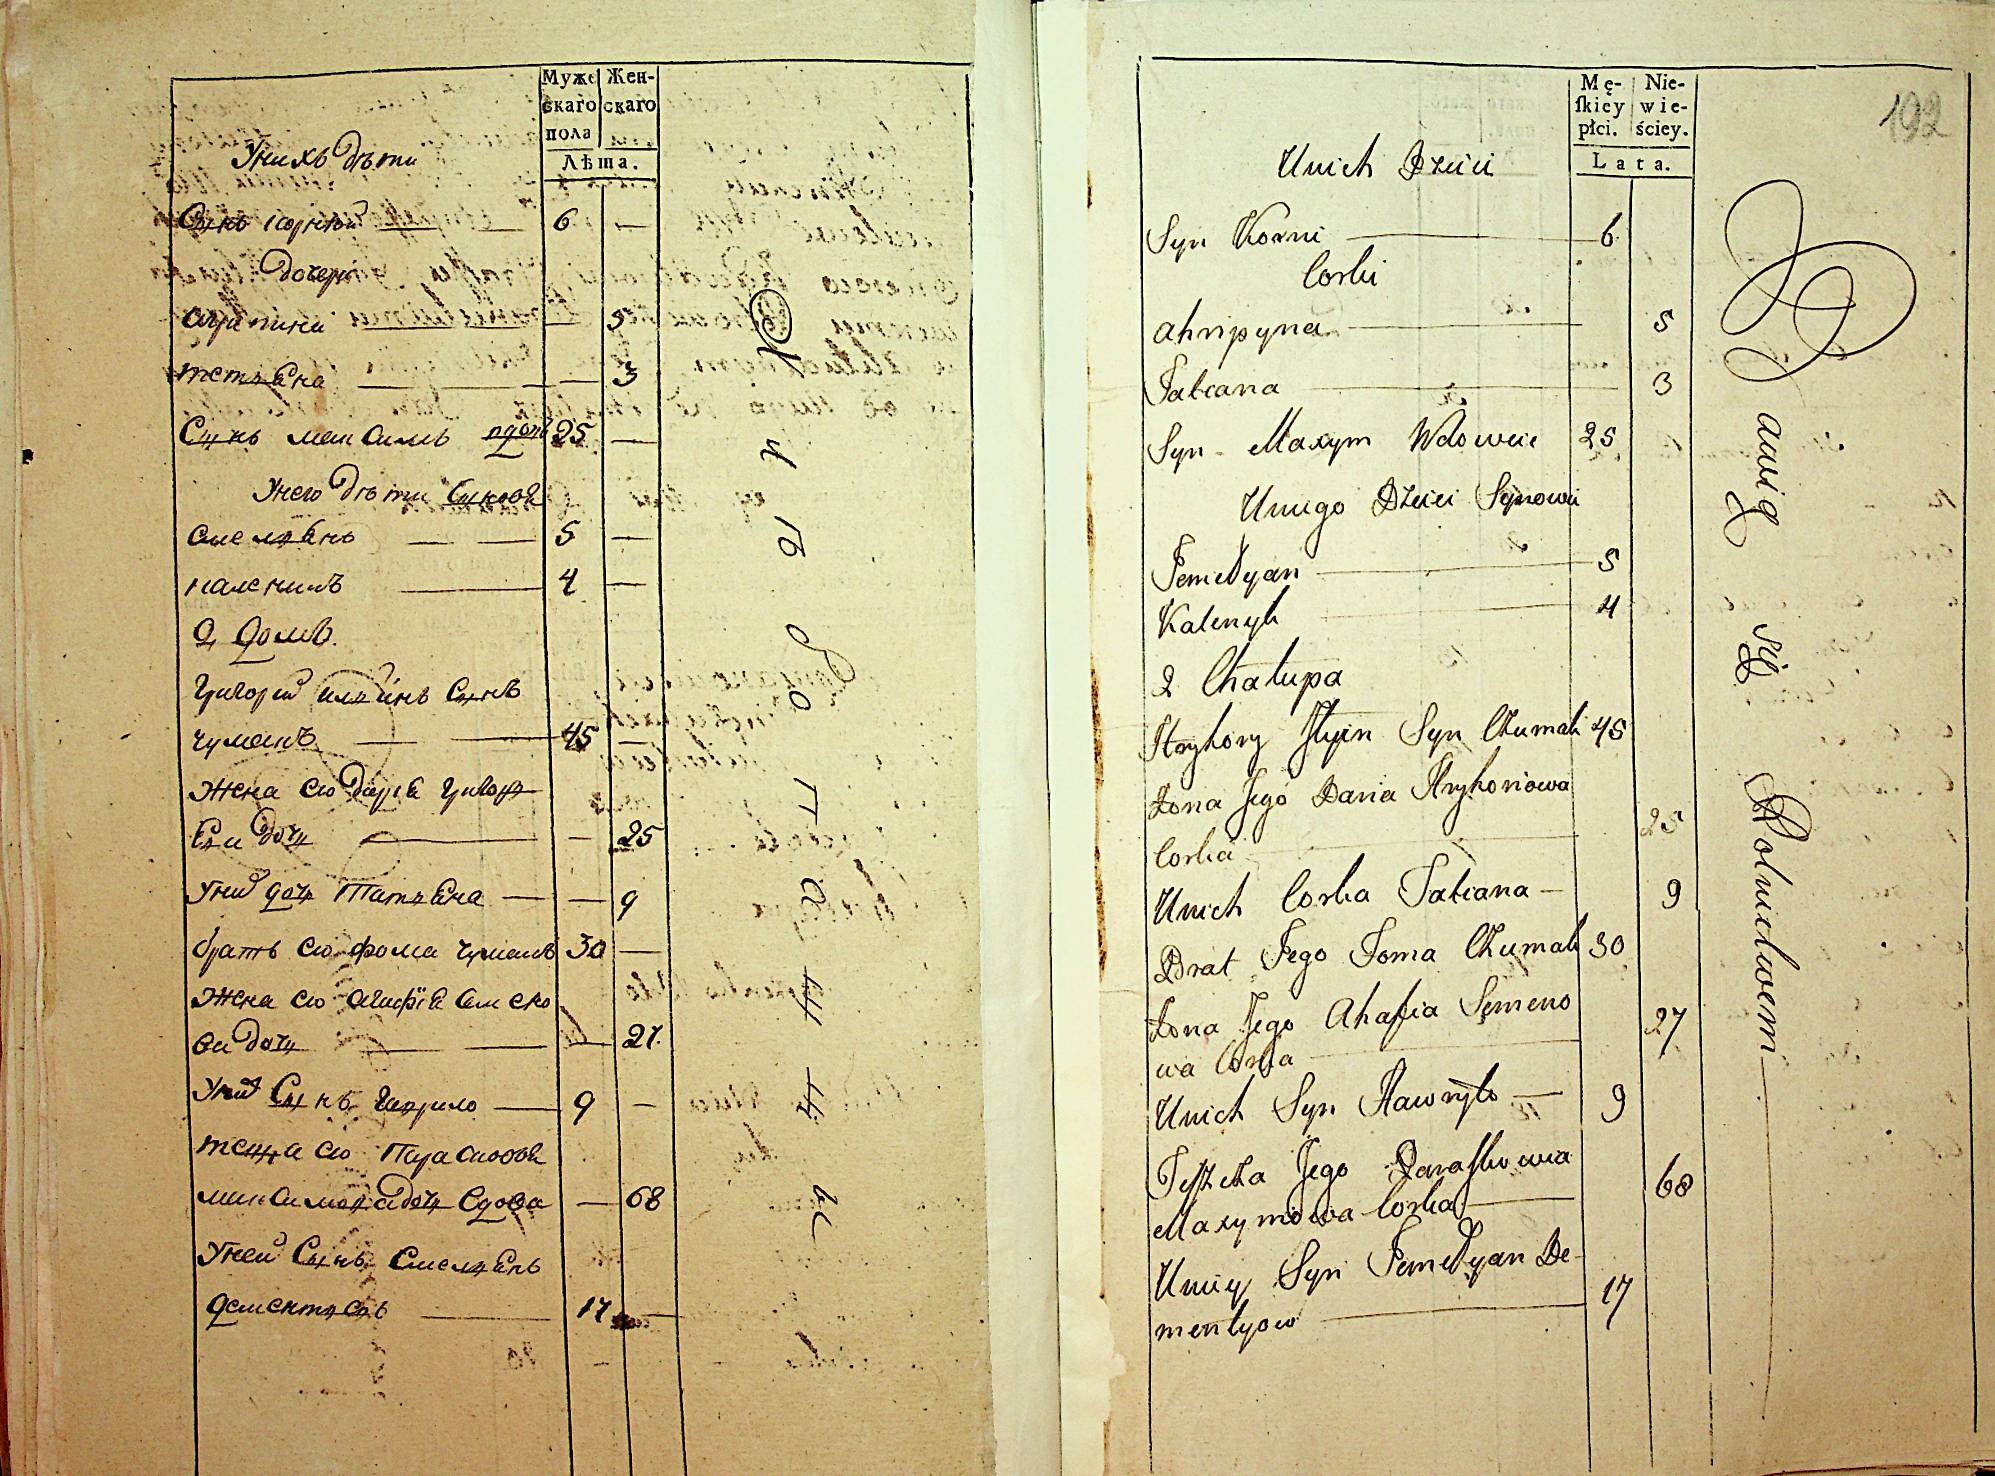 Муже
скаго
пола
Жен-
скаго
Лѣта.
Унихъ дѣти
Сынъ корнѣй 6 —
дочери
агрипина — 5
татьяна — 3
Сынъ максимъ вдовъ 25 —
Унего дѣти Сыновя
емельянъ 5 —
каленикъ 4 —
2, домъ.
Григорий ильинъ Сынъ
чумакъ 45 —
Жена его дарья григорь
ева дочь — 25
Уних дочь Татьяна — 9
братъ его фома чумакъ 30 —
Жена его агафія семено
ва дочь — 27.
Уних Сынъ гаврило 9 —
теща его Парасковья
максимова дочь вдова — 68
Уней Сынъ Емельянъ
дементьевъ 17 —
Mę-
ſkiey
płci.
Nie-
wie-
ściey.
Lata.
192
Unich Dzieci
Syn Korni 6
Corki
Ahripyna 5
Tatiana 3
Syn Maxym Wdowiec 25
Uniego Dzieci Synowie
Jemelyan 5
Kalenyk 4
2 Chałupa
Hryhory Ilyin Syn Czumak 45
Żona Jego Daria Hryhoriowa
Corka 25
Unich Corka Tatiana — 9
Brat Jego Foma Czumak 30
Żona Jego Ahafia Semeno
wa Corka 27
Unich Syn Hawryło — 9
Teszcza Jego Paraskowia
Maxymowa Corka 68
Uniey Syn Jemelyan De-
mentyow 17
Bawią się Rolnictwem